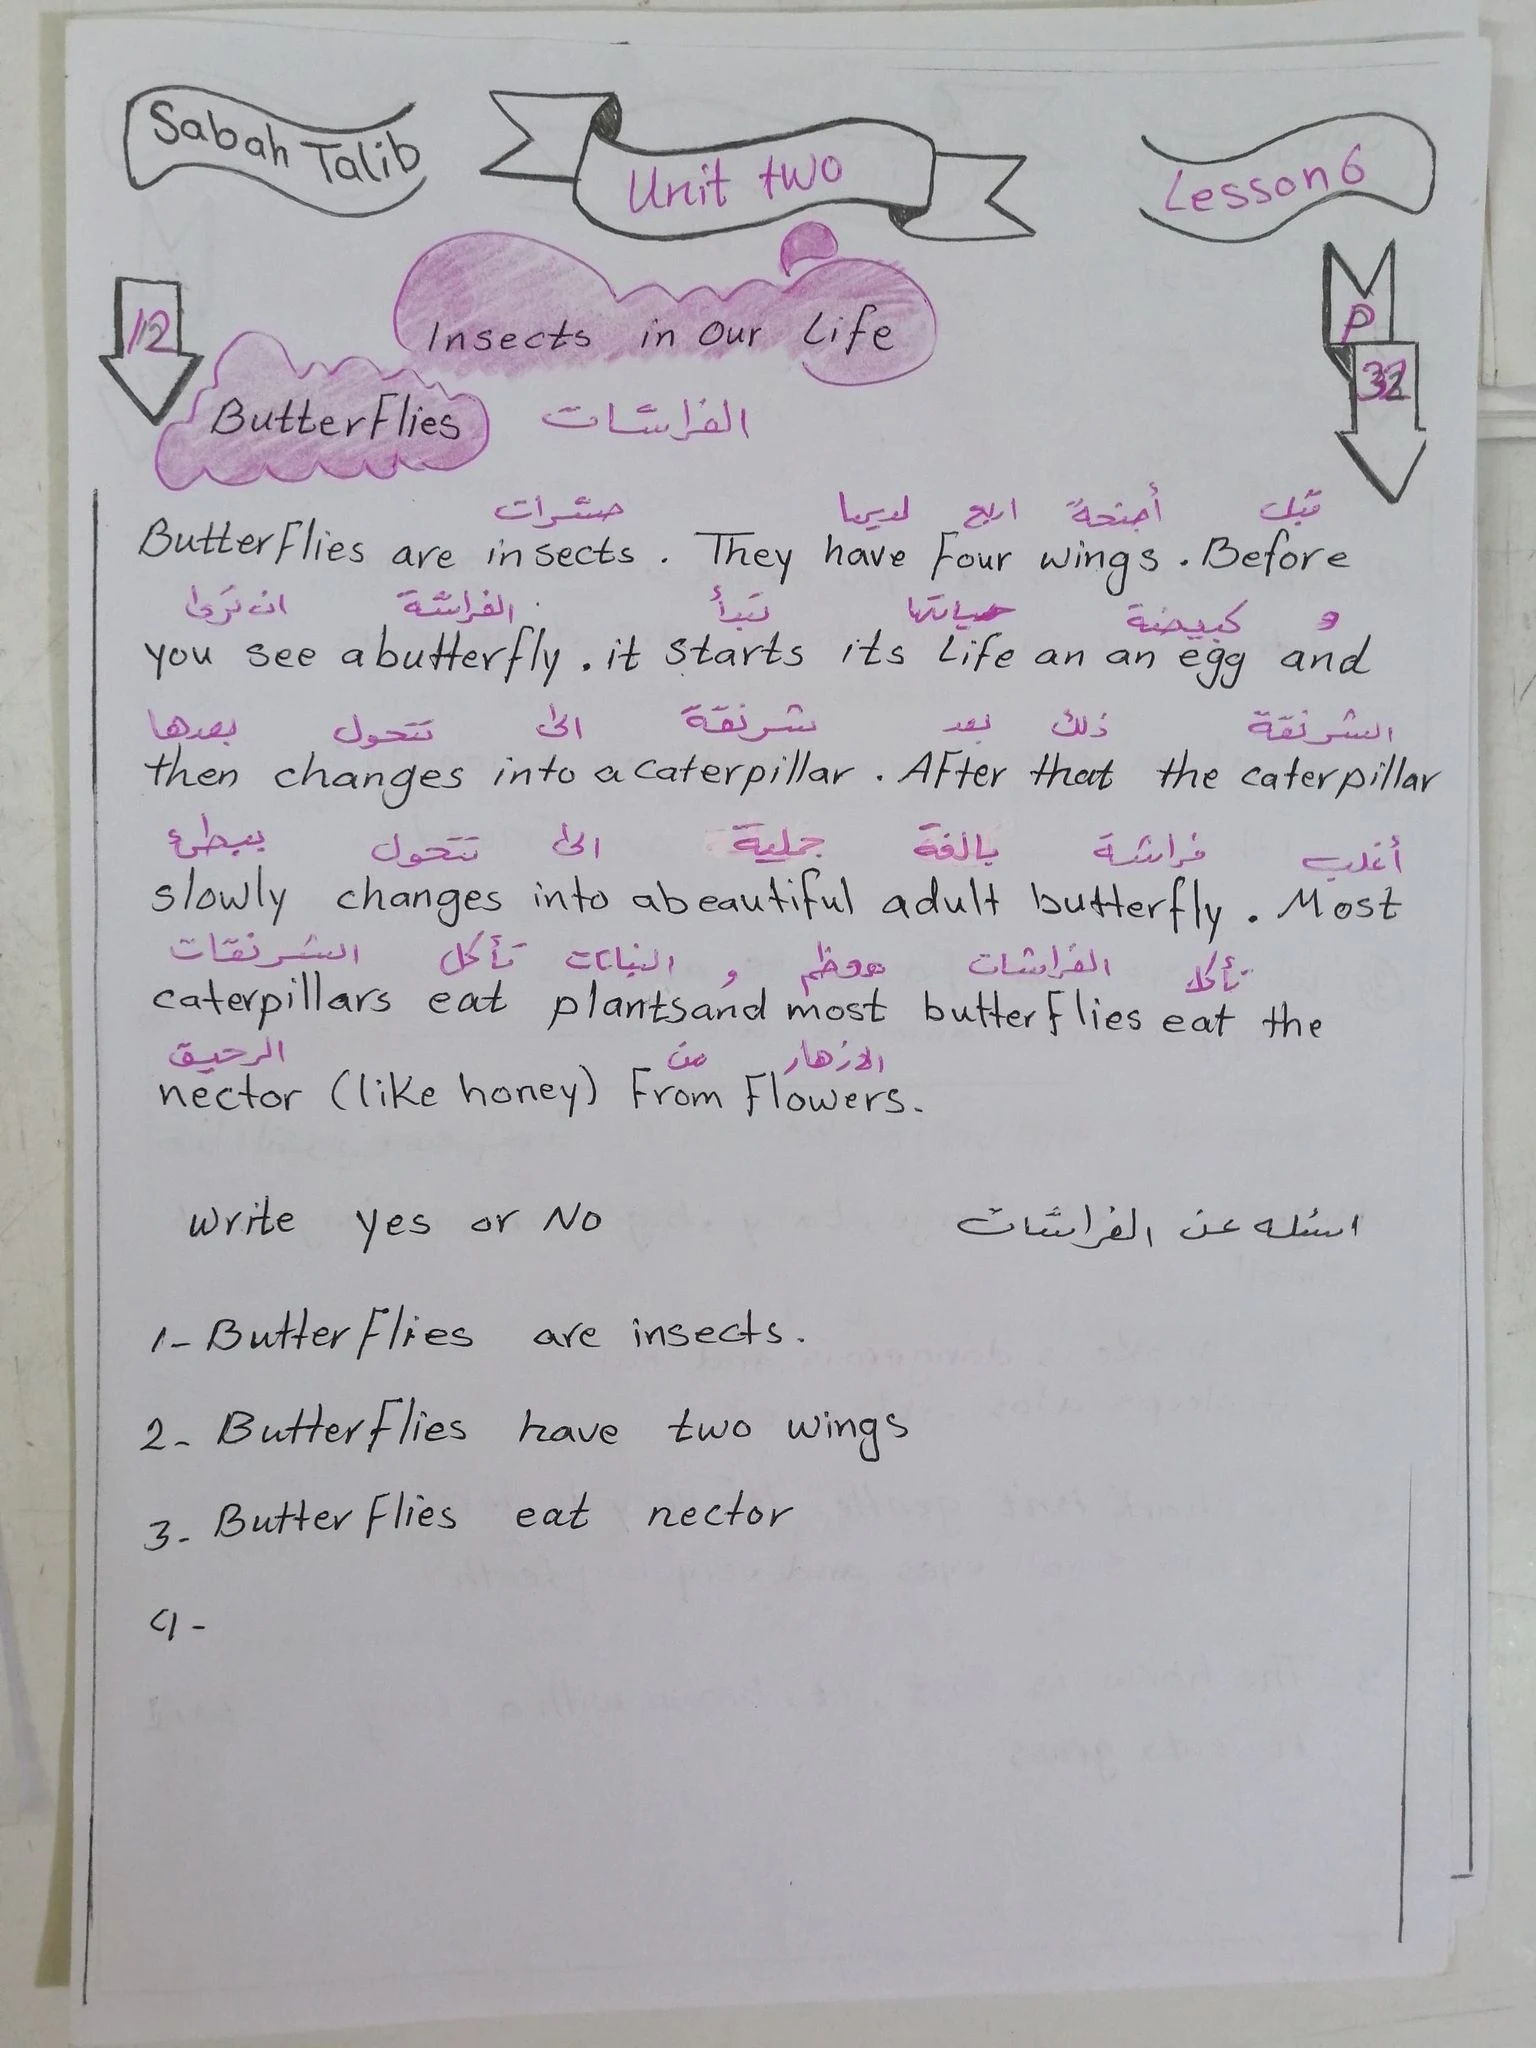 Sabah Talib
Unit two
Lesson 6
12
Insects in our Life
P
32
ButterFlies الفراشات
حشرات لديها اربع أجنحة قبل
ButterFlies are insects. They have Four wings. Before
ان ترى الفراشة تبدأ حياتها كبيضة و
you see a butterfly. it starts its Life an an egg and
بعدها تتحول الى شرنقة بعد ذلك الشرنقة
then changes into a caterpillar. AFter that the caterpillar
ببطئ تتحول الى جملية بالغة فراشة أغلب
slowly changes into a beautiful adult butterfly. Most
الشرنقات تأكل النباتات و الفراشات تأكل
caterpillars eat plantsand most butterflies eat the
الرحيق من الازهار
nector (like honey) From Flowers.
Write yes or No اسئله عن الفراشات
1- ButterFlies are insects.
2- ButterFlies have two wings
3- ButterFlies eat nector
4-